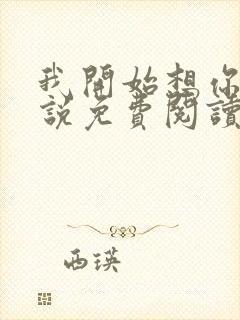 我開始想你
說免費閱讀
西瑛